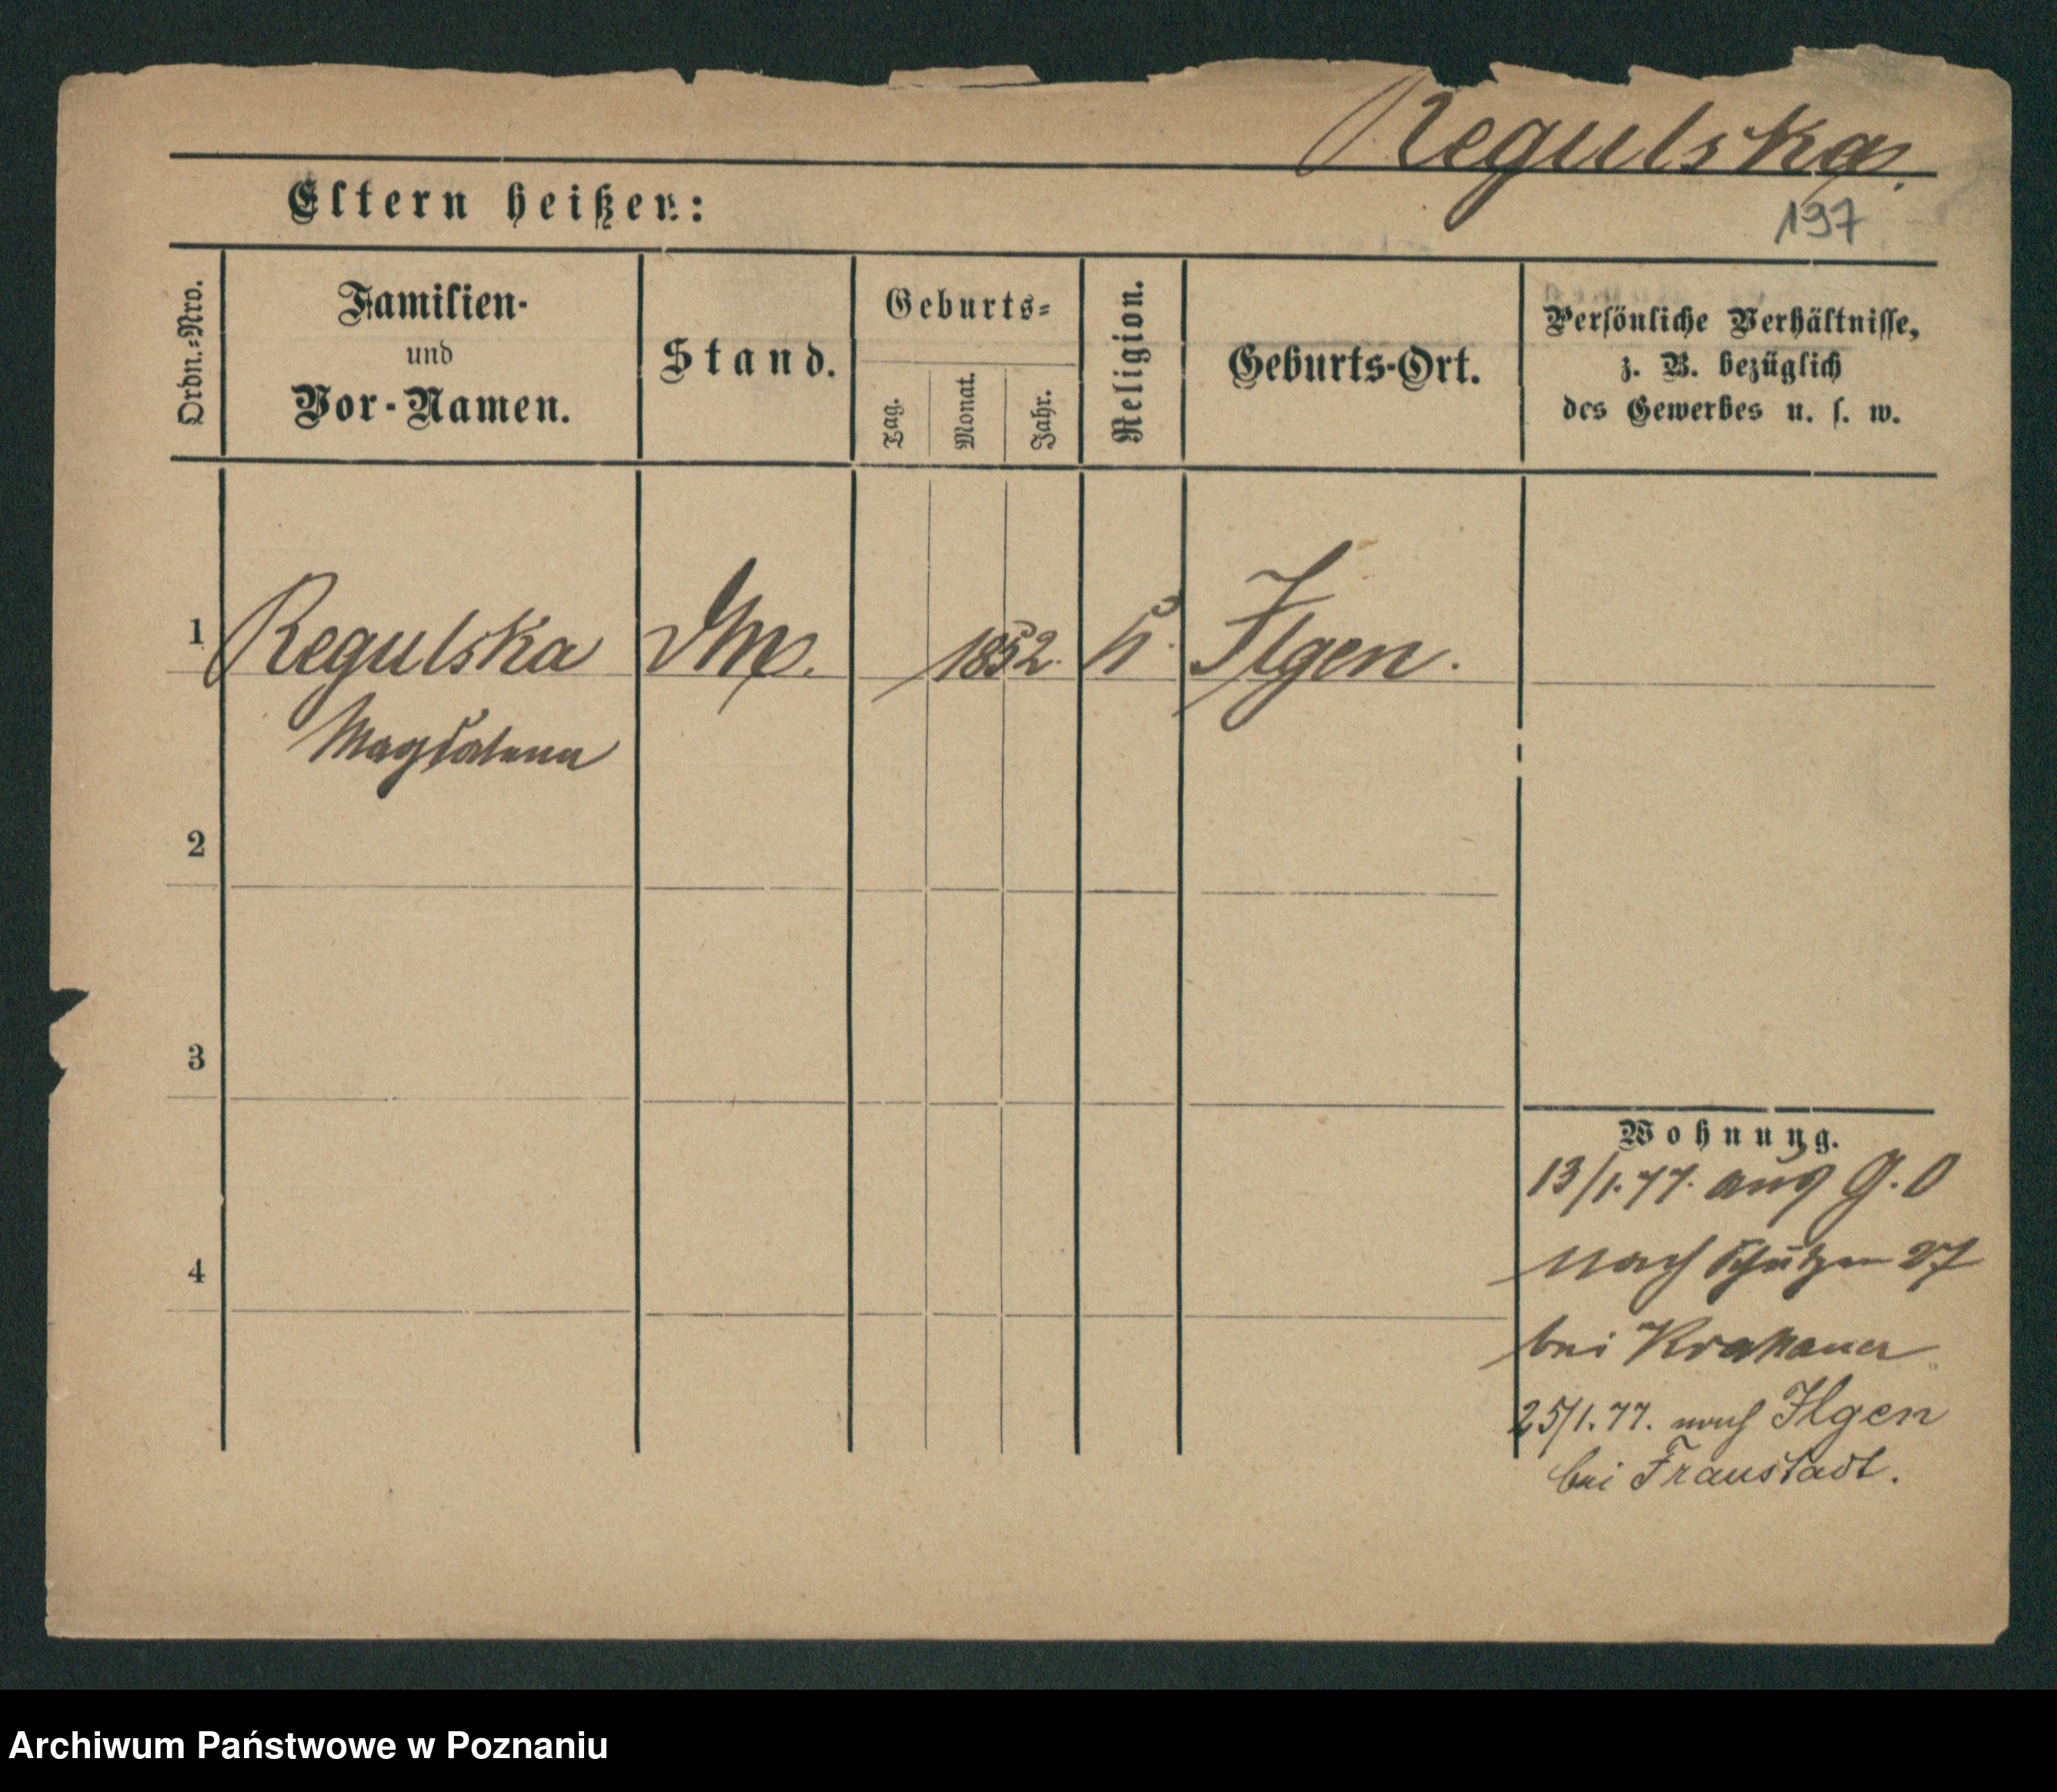 Regulska.
197
Eltern heißen:
Ordn.-Nro.
Familien-
und
Vor-Namen.
Stand.
Geburts-
Tag.
Monat.
Jahr.
Religion.
Geburts-Ort.
Persönliche Verhältnisse,
z. B. bezüglich
des Gewerbes u. s. w.
1
Regulska
1852.
Ilgen.
Magdalena
2
3
4
Wohnung.
13/1.77. aus G.O
nach Schützen 27
bei Krakauer
25/1.77. nach Ilgen
bei Fraustadt.
Archiwum Państwowe w Poznaniu